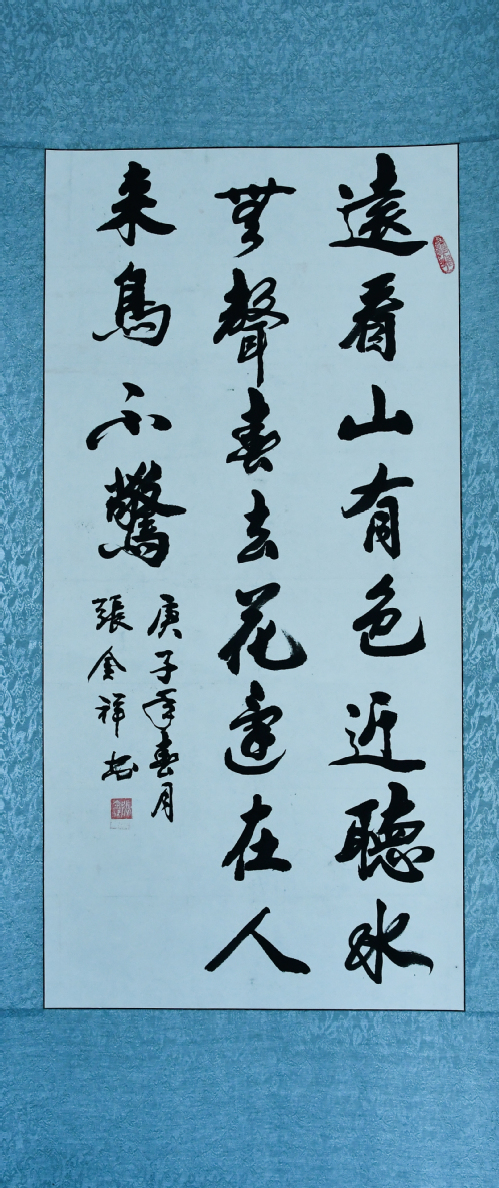 遠看山有色近聽水
無聲春去花還在人
来鳥不驚
庚子年春月
張金祥书